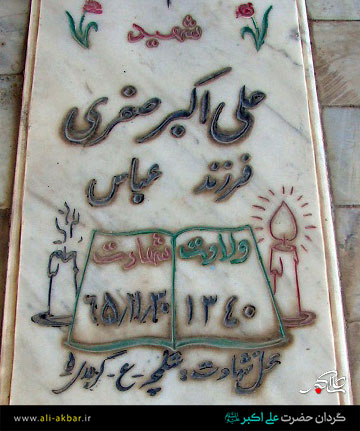 شهید
علی اکبر صفری
فرزند عباس
ولادت شهادت
۱۳۴۰ ۶۵/۱۱/۲۰
محل شهادت: شلمچه - ع - کربلای
www.ali-akbar.ir گردان حضرت علی اکبر